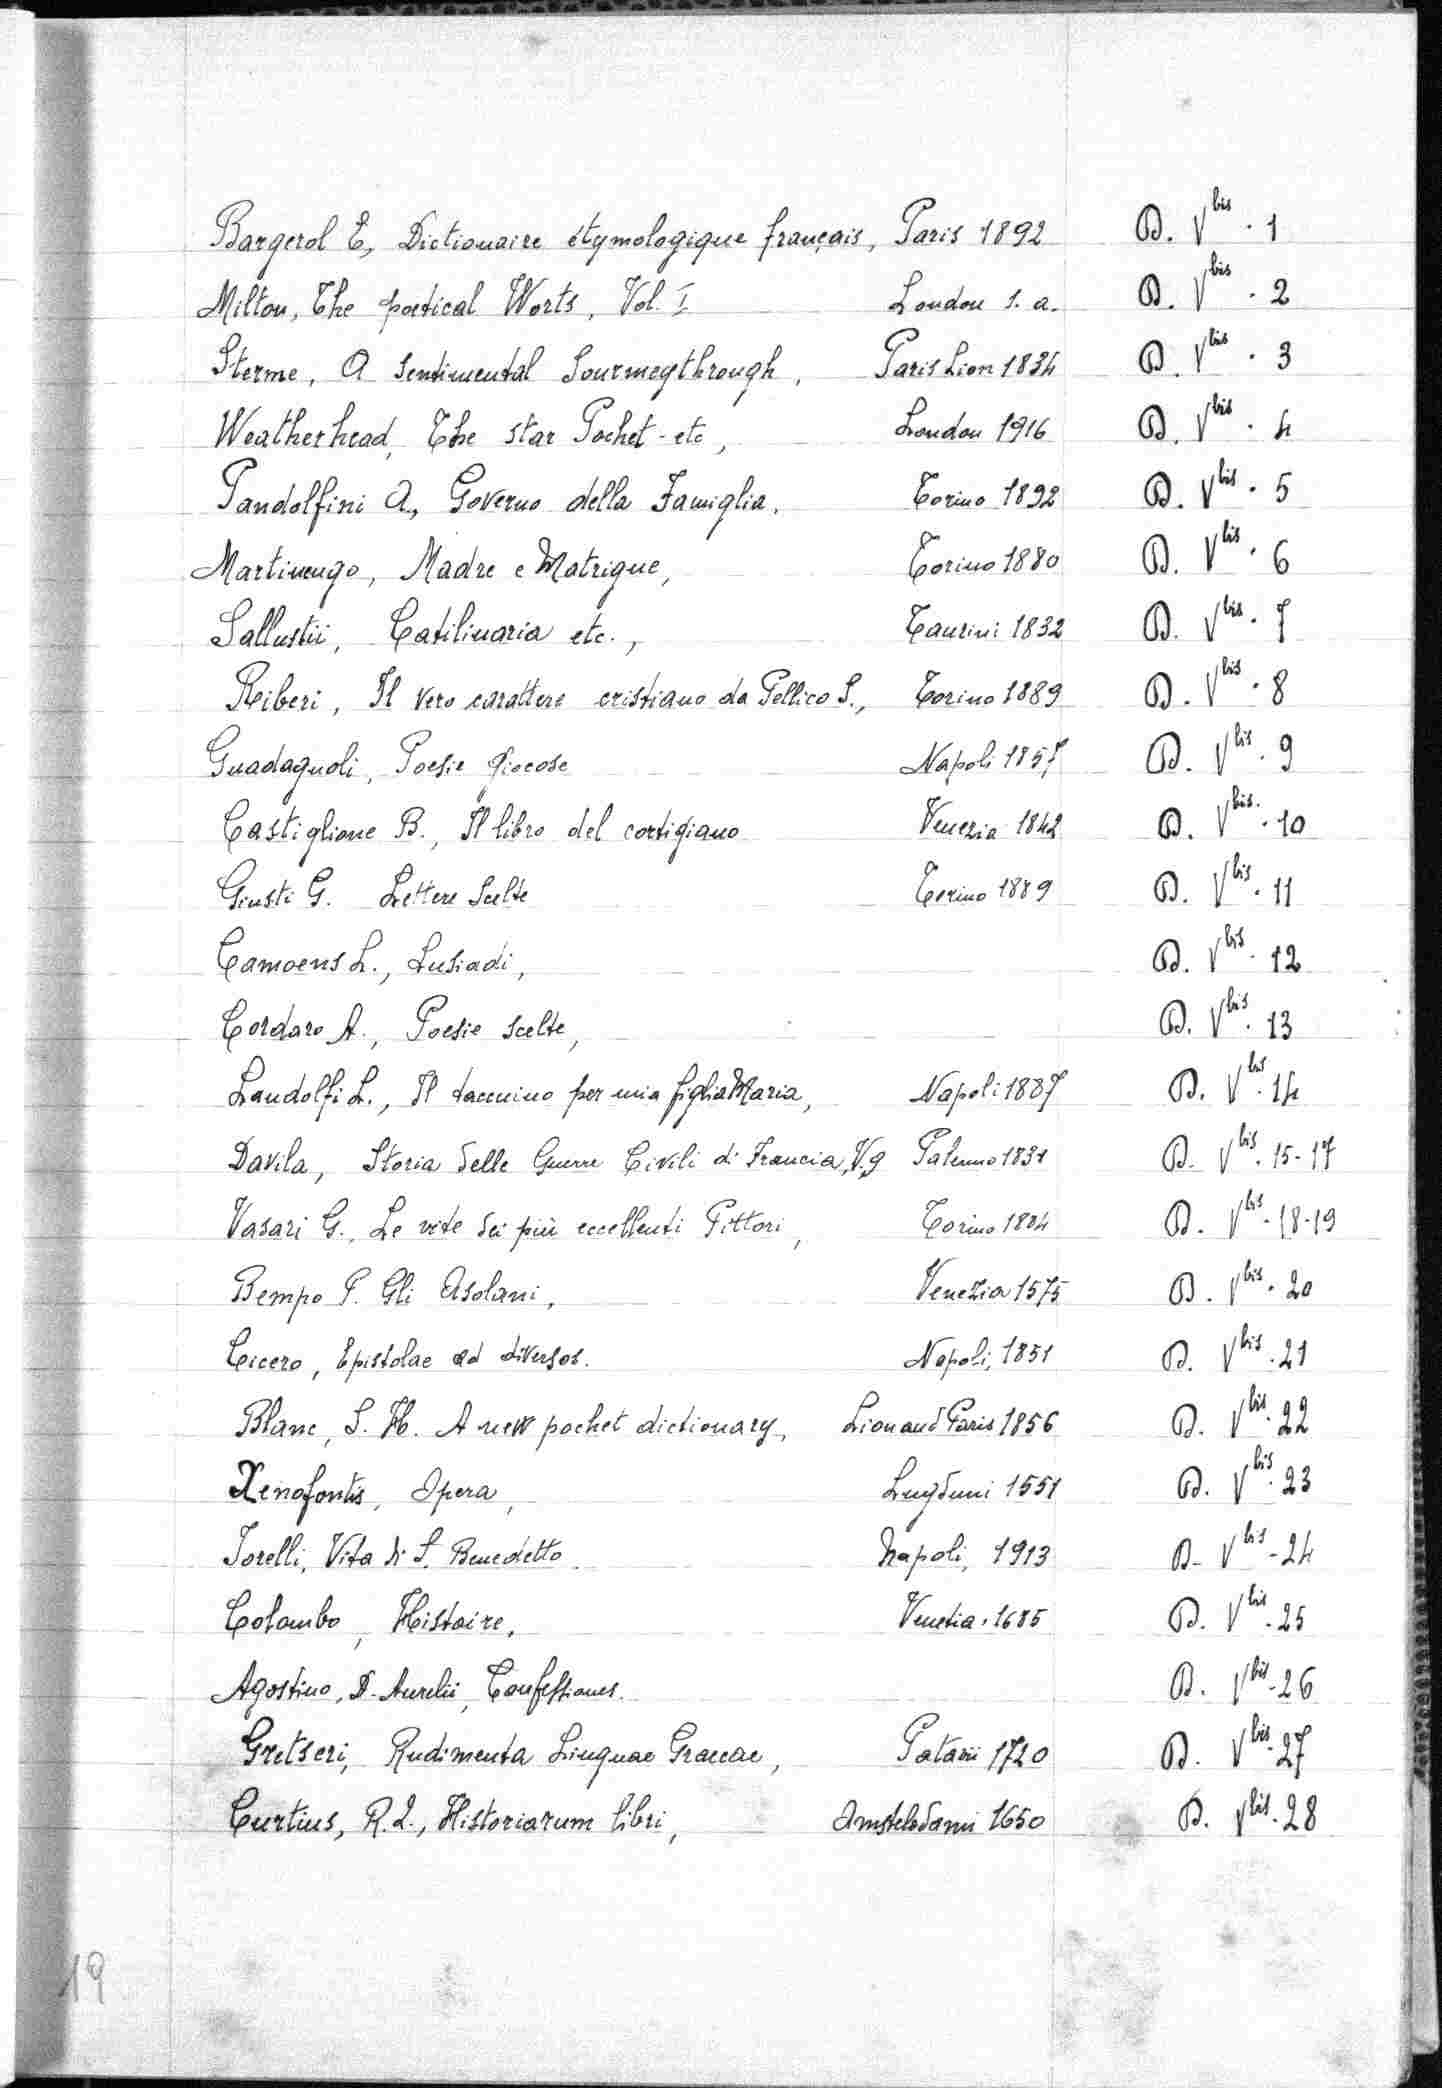 Bargerol E, Dictionaire étymologique français, Paris 1892 B. V bis . 1
Milton, The poetical Worts, Vol. I London s. a. B. V bis . 2
Sterme, A sentimental Sourmeythrough, Paris Lion 1834 B. V bis . 3
Weatherhead, The star Pochet - etc, London 1916 B. V bis . 4
Pandolfini A., Governo della Famiglia, Torino 1892 B. V bis . 5
Martinengo, Madre e Matrigue, Torino 1880 B. V bis . 6
Sallustii, Catilinaria etc., Taurini 1832 B. V bis . 7
Riberi, Il vero carattere cristiano da Pellico S., Torino 1889 B. V bis . 8
Guadagnoli, Poesie giocose Napoli 1857 B. V bis . 9
Castiglione B., Il libro del cortigiano Venezia 1842 B. V bis . 10
Giusti G. Lettere Scelte Torino 1889 B. V bis . 11
Camoens L., Lusiadi, B. V bis . 12
Cordaro A., Poesie scelte, B. V bis . 13
Landolfi L., Il taccuino per mia figlia Maria, Napoli 1887 B. V bis . 14
Davila, Storia delle Guerre Civili di Francia, V. 9 Palermo 1831 B. V bis . 15-17
Vasari G., Le vite dei più eccellenti Pittori, Torino 1884 B. V bis - 18-19
Bempo P. Gli Asolani, Venezia 1575 B. V bis . 20
Cicero, Epistolae ad diversos. Napoli, 1851 B. V bis . 21
Blanc, S. H. A new pochet dictionary, Lion and Paris 1856 B. V bis . 22
Xenofontis, Opera, Lugduni 1551 B. V bis . 23
Torelli, Vita di S. Benedetto Napoli, 1913 B- V bis - 24
Colombo, Histoire, Venetia . 1685 B. V bis . 25
Agostino, D. Aurelii, Confessiones. B. V bis - 26
Gretseri, Rudimenta Linguae Graecae, Patavii 1720 B. V bis - 27
Curtius, R. Q., Historiarum libri, Amstelodami 1650 B. V bis . 28
19